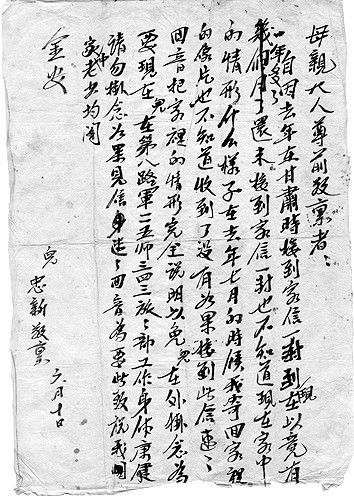 母親大人尊前敬禀者：
自因去年在甘肅時接到家信一封到現在以竟有
一年多了
幾個月了還未接到家信一封也不知道現在家中
的情形什么樣子在去年七月的時候我寄回家裡
的像片也不知道收到了没有如果接到此信速之
回音把家裡的情形完全說明以免兒在外掛念為
要現在兒在第八路軍一一五師三四三旅之部工作身体康健
請勿掛念如果見信身速之回音為要此致祝我
家中老少均闔
金安
兒 忠新敬禀 六月十日